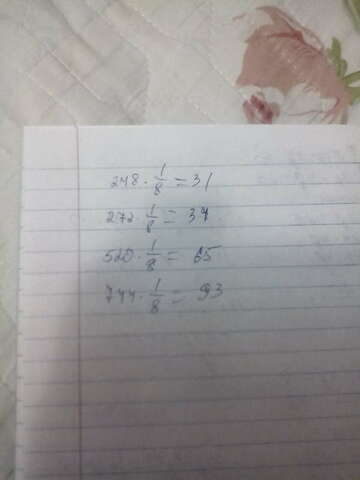 248 · 1/8 = 31
272 · 1/8 = 34
520 · 1/8 = 65
744 · 1/8 = 93